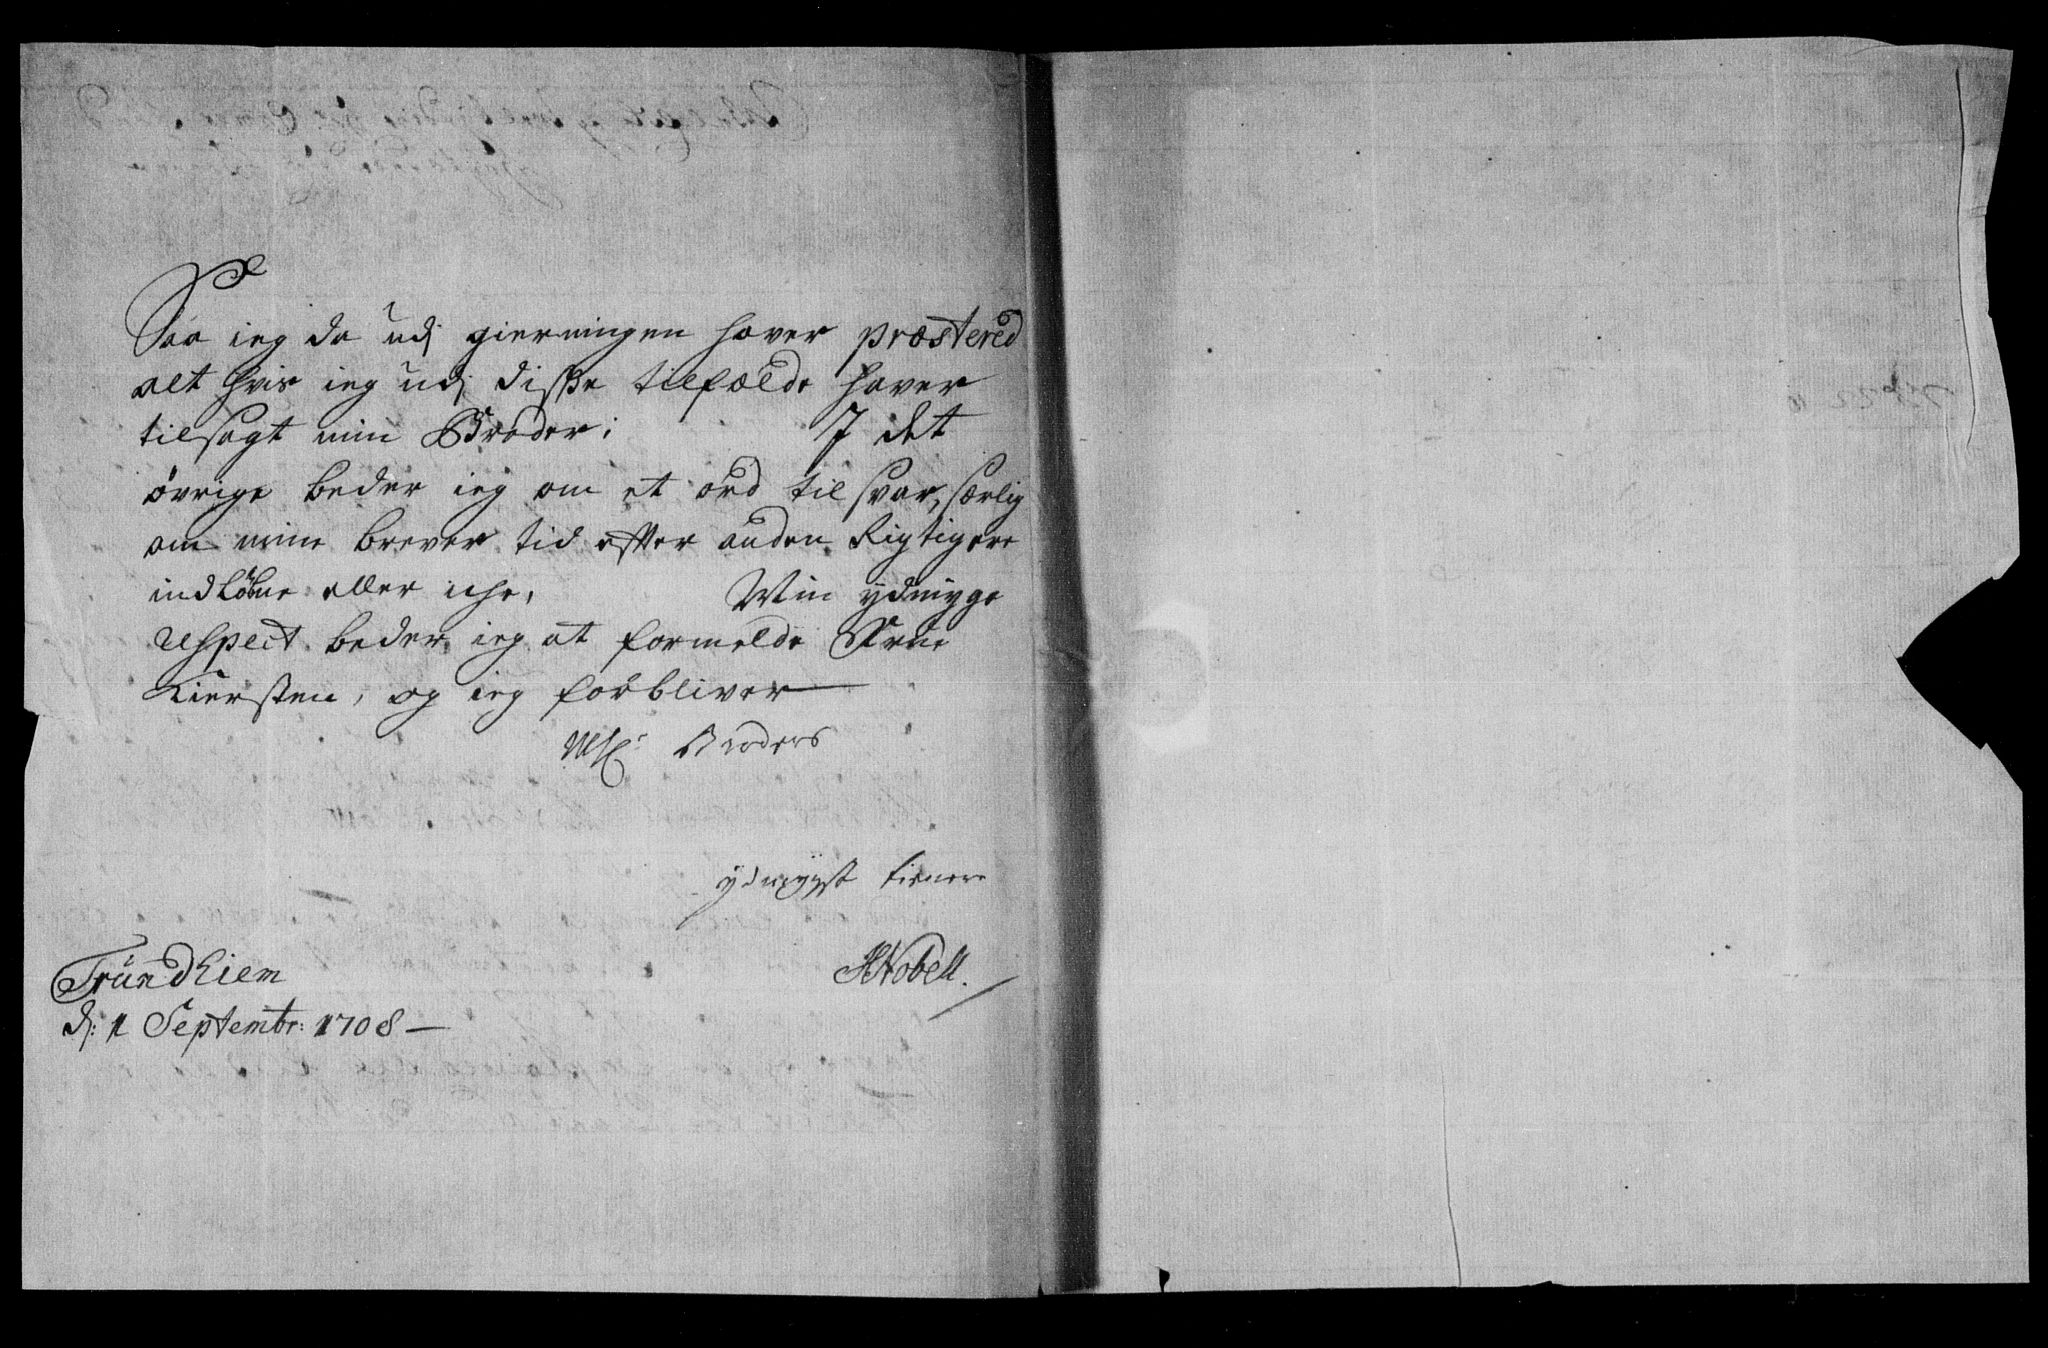 Saa ieg da udj gierningen haver præstered
alt hvis ieg udj disse tilfælde haver
tilsagt min Broder; J det
øvrige beder ieg om et ord til svar, særlig
om mine brever tid efter anden Rigtig ere
indløbne eller iche, Min ydmyge
respect beder ieg at formelde Frue
Kiersten, og ieg forbliver
Broders
ydmygst tienere
Trundhiem HNobell.
d: 1 Septembr: 1708